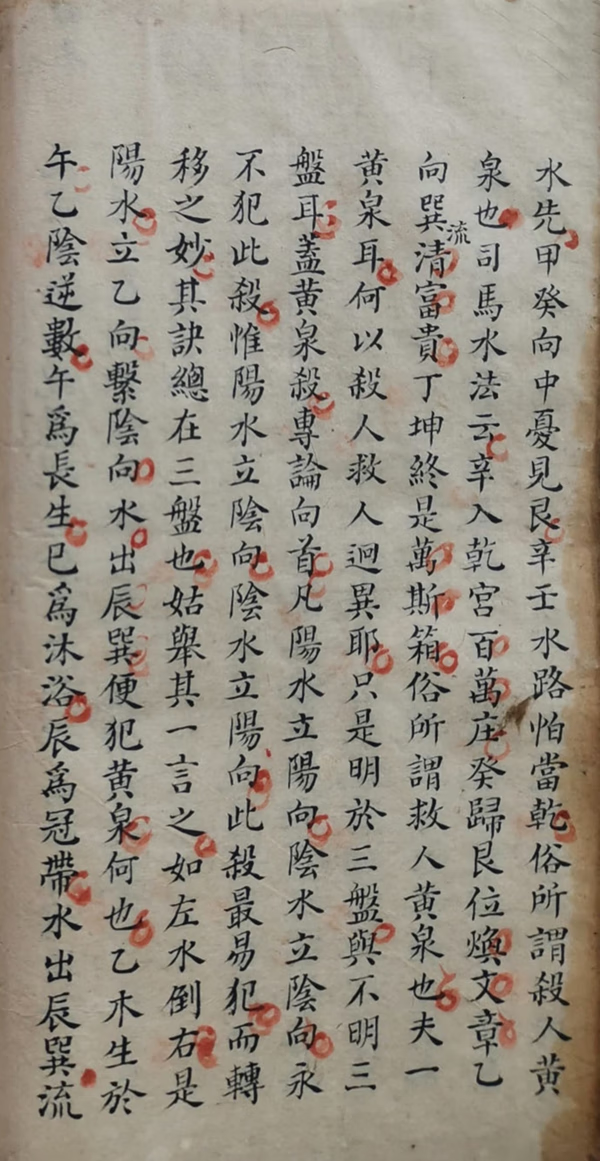 水先甲癸向中憂見艮辛壬水路怕當乾俗所謂殺人黃
泉也司馬水法云辛入乾宮百萬庄癸歸艮位煥文章乙
向巽流清富貴丁坤終是萬斯箱俗所謂救人黃泉也夫一
黃泉耳何以殺人救人迥異耶只是明於三盤與不明三
盤耳蓋黃泉殺專論向首凡陽水立陽向陰水立陰向永
不犯此殺惟陽水立陰向陰水立陽向此殺最易犯而轉
移之妙其訣總在三盤也姑舉其一言之如左水倒右是
陽水立乙向繫陰向水出辰巽便犯黃泉何也乙木生於
午乙陰逆數午為長生巳為沐浴辰為冠帶水出辰巽流